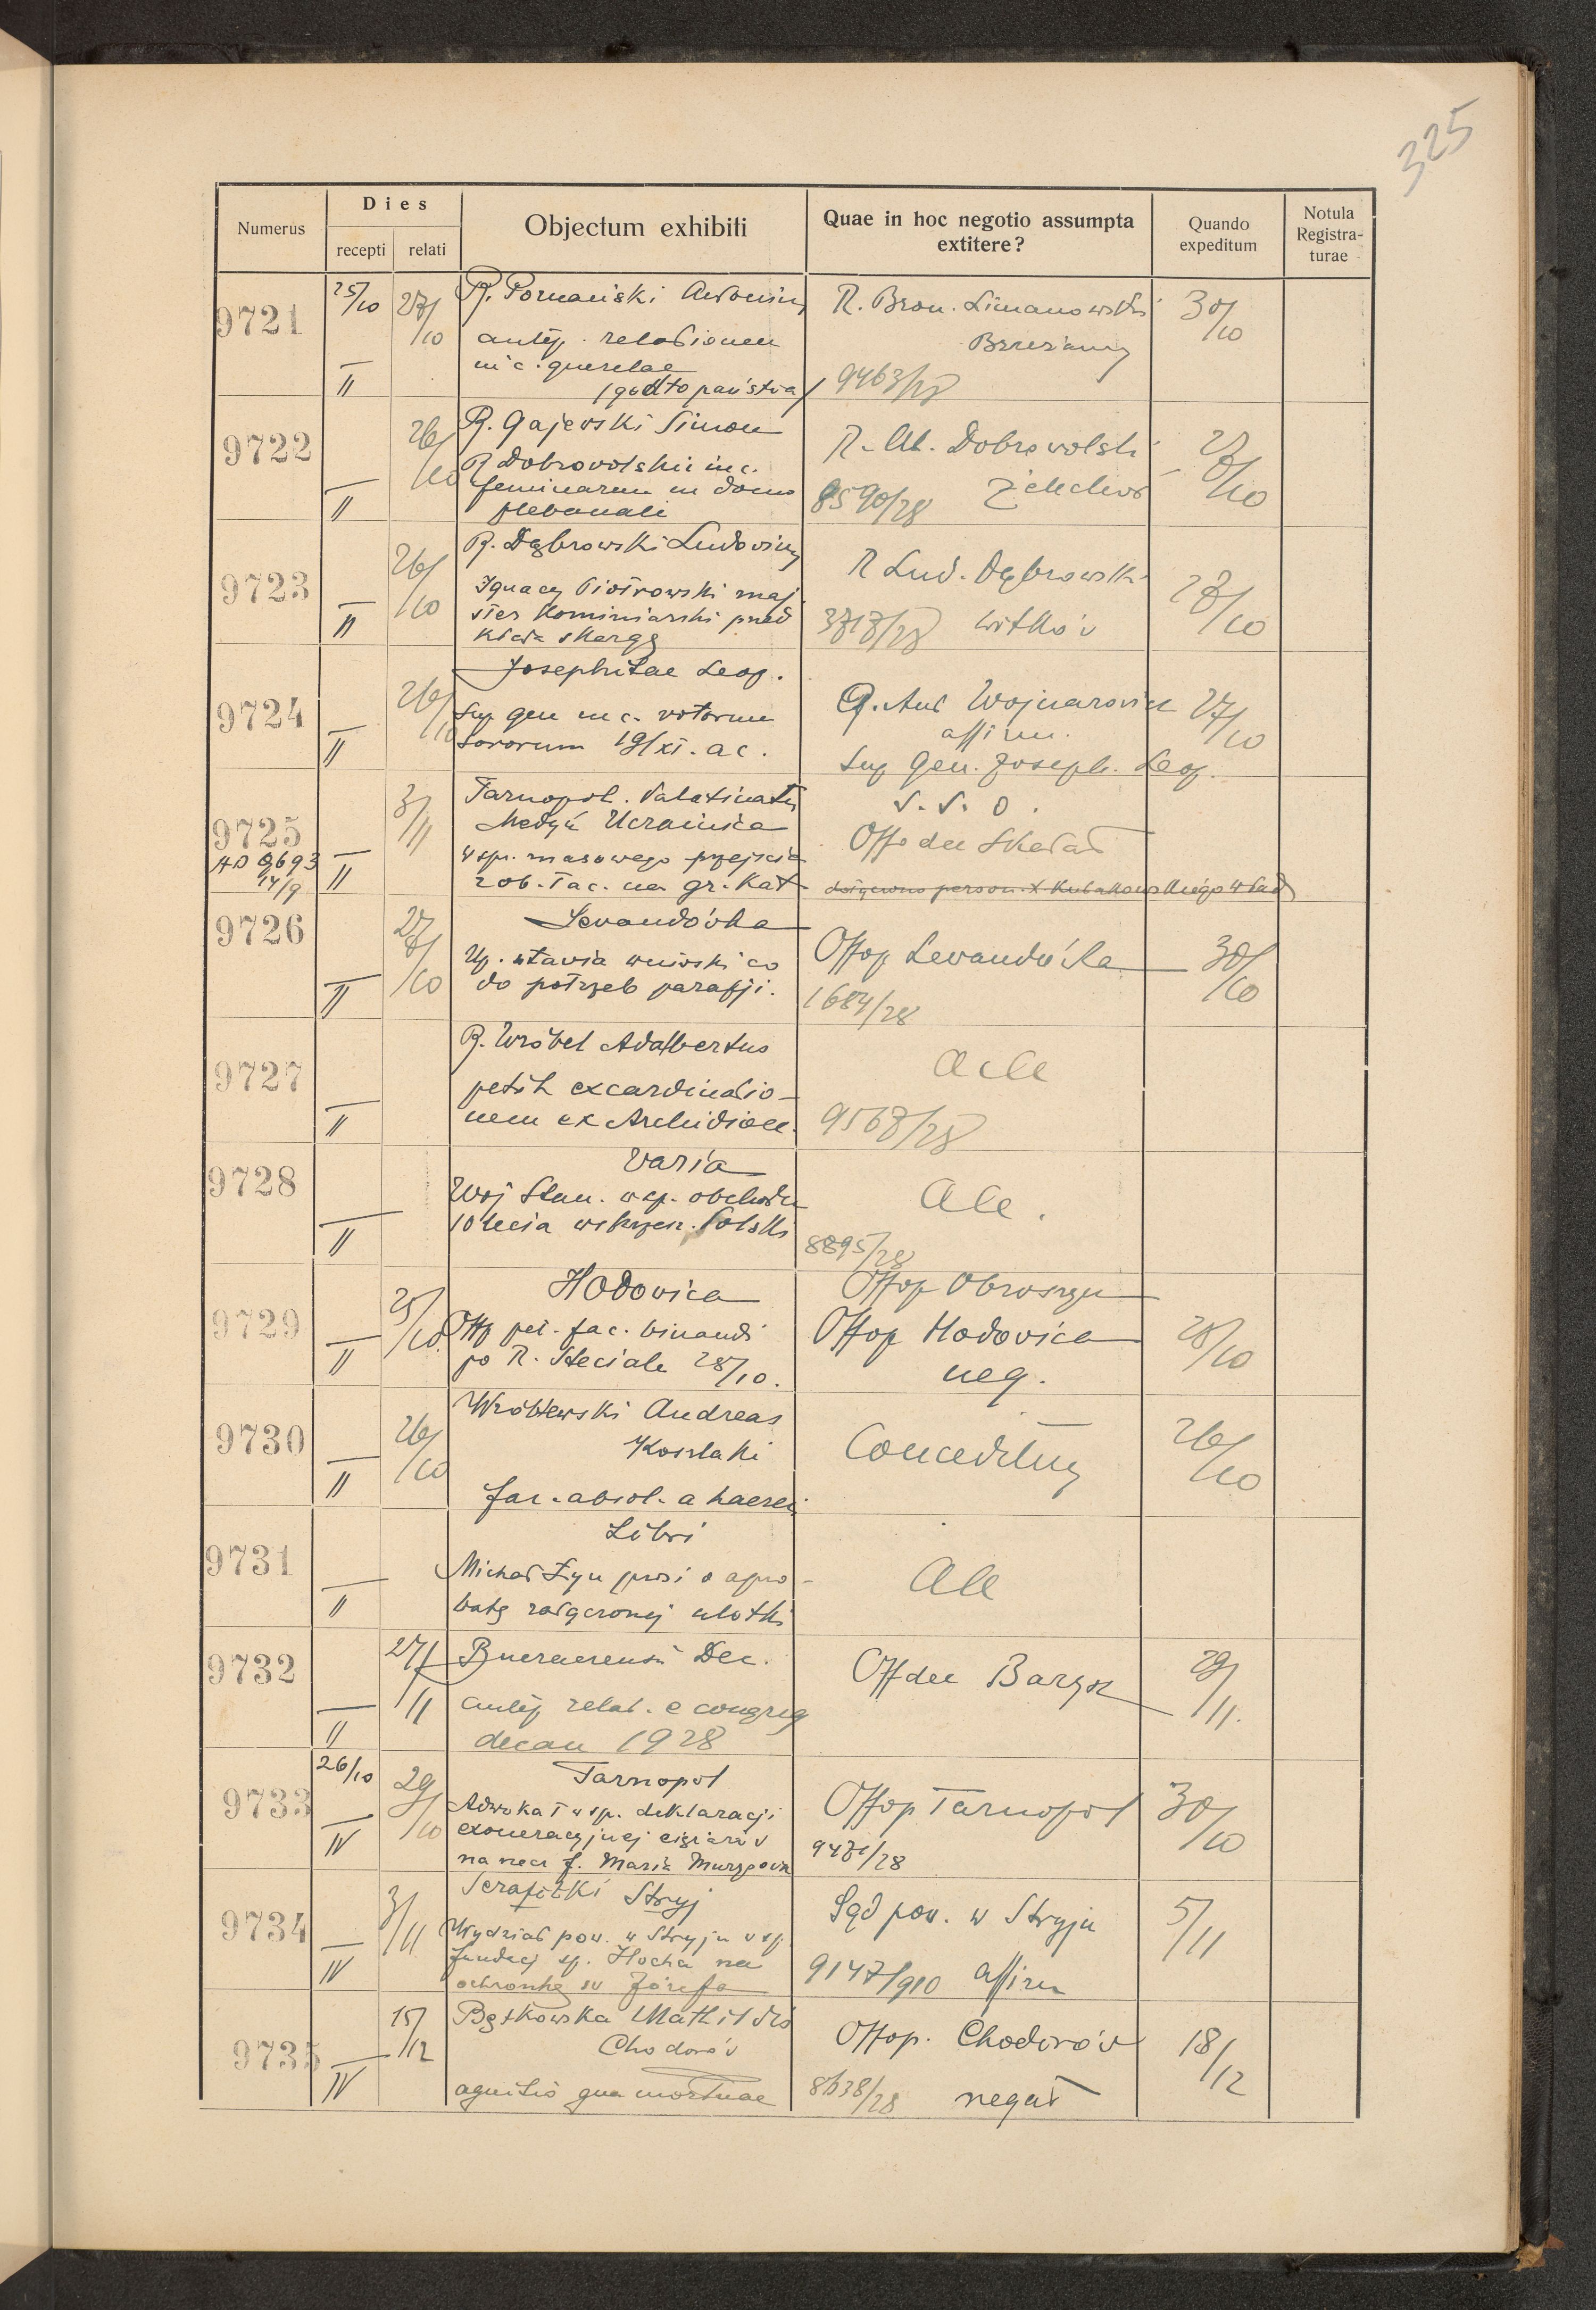 325
Numerus
Dies
recepti relati
Objectum exhibiti
Quae in hoc negotio assumpta
extitere?
Quando
expeditum
Notula
Registra-
turae
9721
25/10
27/10
II
R. Poznański Antonius
relationem
in c. querelae
R. Bron. Limanowski
Brzeżany
9463/28
30/10
9722
26/10
II
R. Gajewski Simon
R Dobrowolski in c.
feminarum in domo
plebanali
R. Dobrowolski
8590/28
27/10
9723
26/10
II
R. Dąbrowski Ludovicus
Ignacy Piotrowski maj
ster Kominiarski przed
kłada skargę
R Lud. Dąbrowski
Witków
/10
9724
26/10
II
Josephitae Leop.
Sup gen in c. votorum
sororum 19/XI. a c.
R. Ant Wojnarowicz
affirm.
Sup Gen. Joseph. Leop.
27/10
9725
AD 9693
14/9
3/11
II
Tarnopol. Palatinatus
Medyń Ucrainica
w spr. masowego przejścia
rob. łac. na gr. Kat
S. S. O.
Off dec Skałat
9726
27/10
II
Lewandówka
Up. stawia wnioski co
do potrzeb parafji.
Offop Lewandówka
1684/28
30/10
9727
II
R. Wróbel Adalbertus
petit excardinatio-
nem ex Archidioec.
9567/28
9728
II
Varia
Woj Stan. w sp. obchodu
10 lecia wskrzesz. Polski
8895/28
9729
25/10
II
Hodovica
Offp pet. fac. binandi
po R. Steciale 28/10.
Offop Obroszyn
Offop Hodovica
neg.
9730
26/10
II
Wróblewski Andreas
Koszlaki
fac. absol. a haeresi
Conceditur
26/10
9731
II
Libri
Michał Żyn prosi o apro-
batę załączonej ulotki
9732
27/11
II
Buczacensis Dec.
relat. e congreg
decan 1928
Offdec Barysz
29/11.
9733
26/10
29/10
IV
Tarnopol
Adwokat w sp. deklaracji
exoneracyjnej ciężarów
na rzecz f. Maria
Offop Tarnopol
30/10
9734
3/11
IV
Serafitki Stryj
Wydział pow. w Stryju w sp.
fundacj sp. Hocha na
ochronkę św Józefa
Sąd pow. w Stryju
9147/910 affirm
5/11
9735
15/12
IV
Bątkowska Mathildis
Chodorów
agnitio qua mortuae
Offop. Chodorów
8638/28 negat
18/12